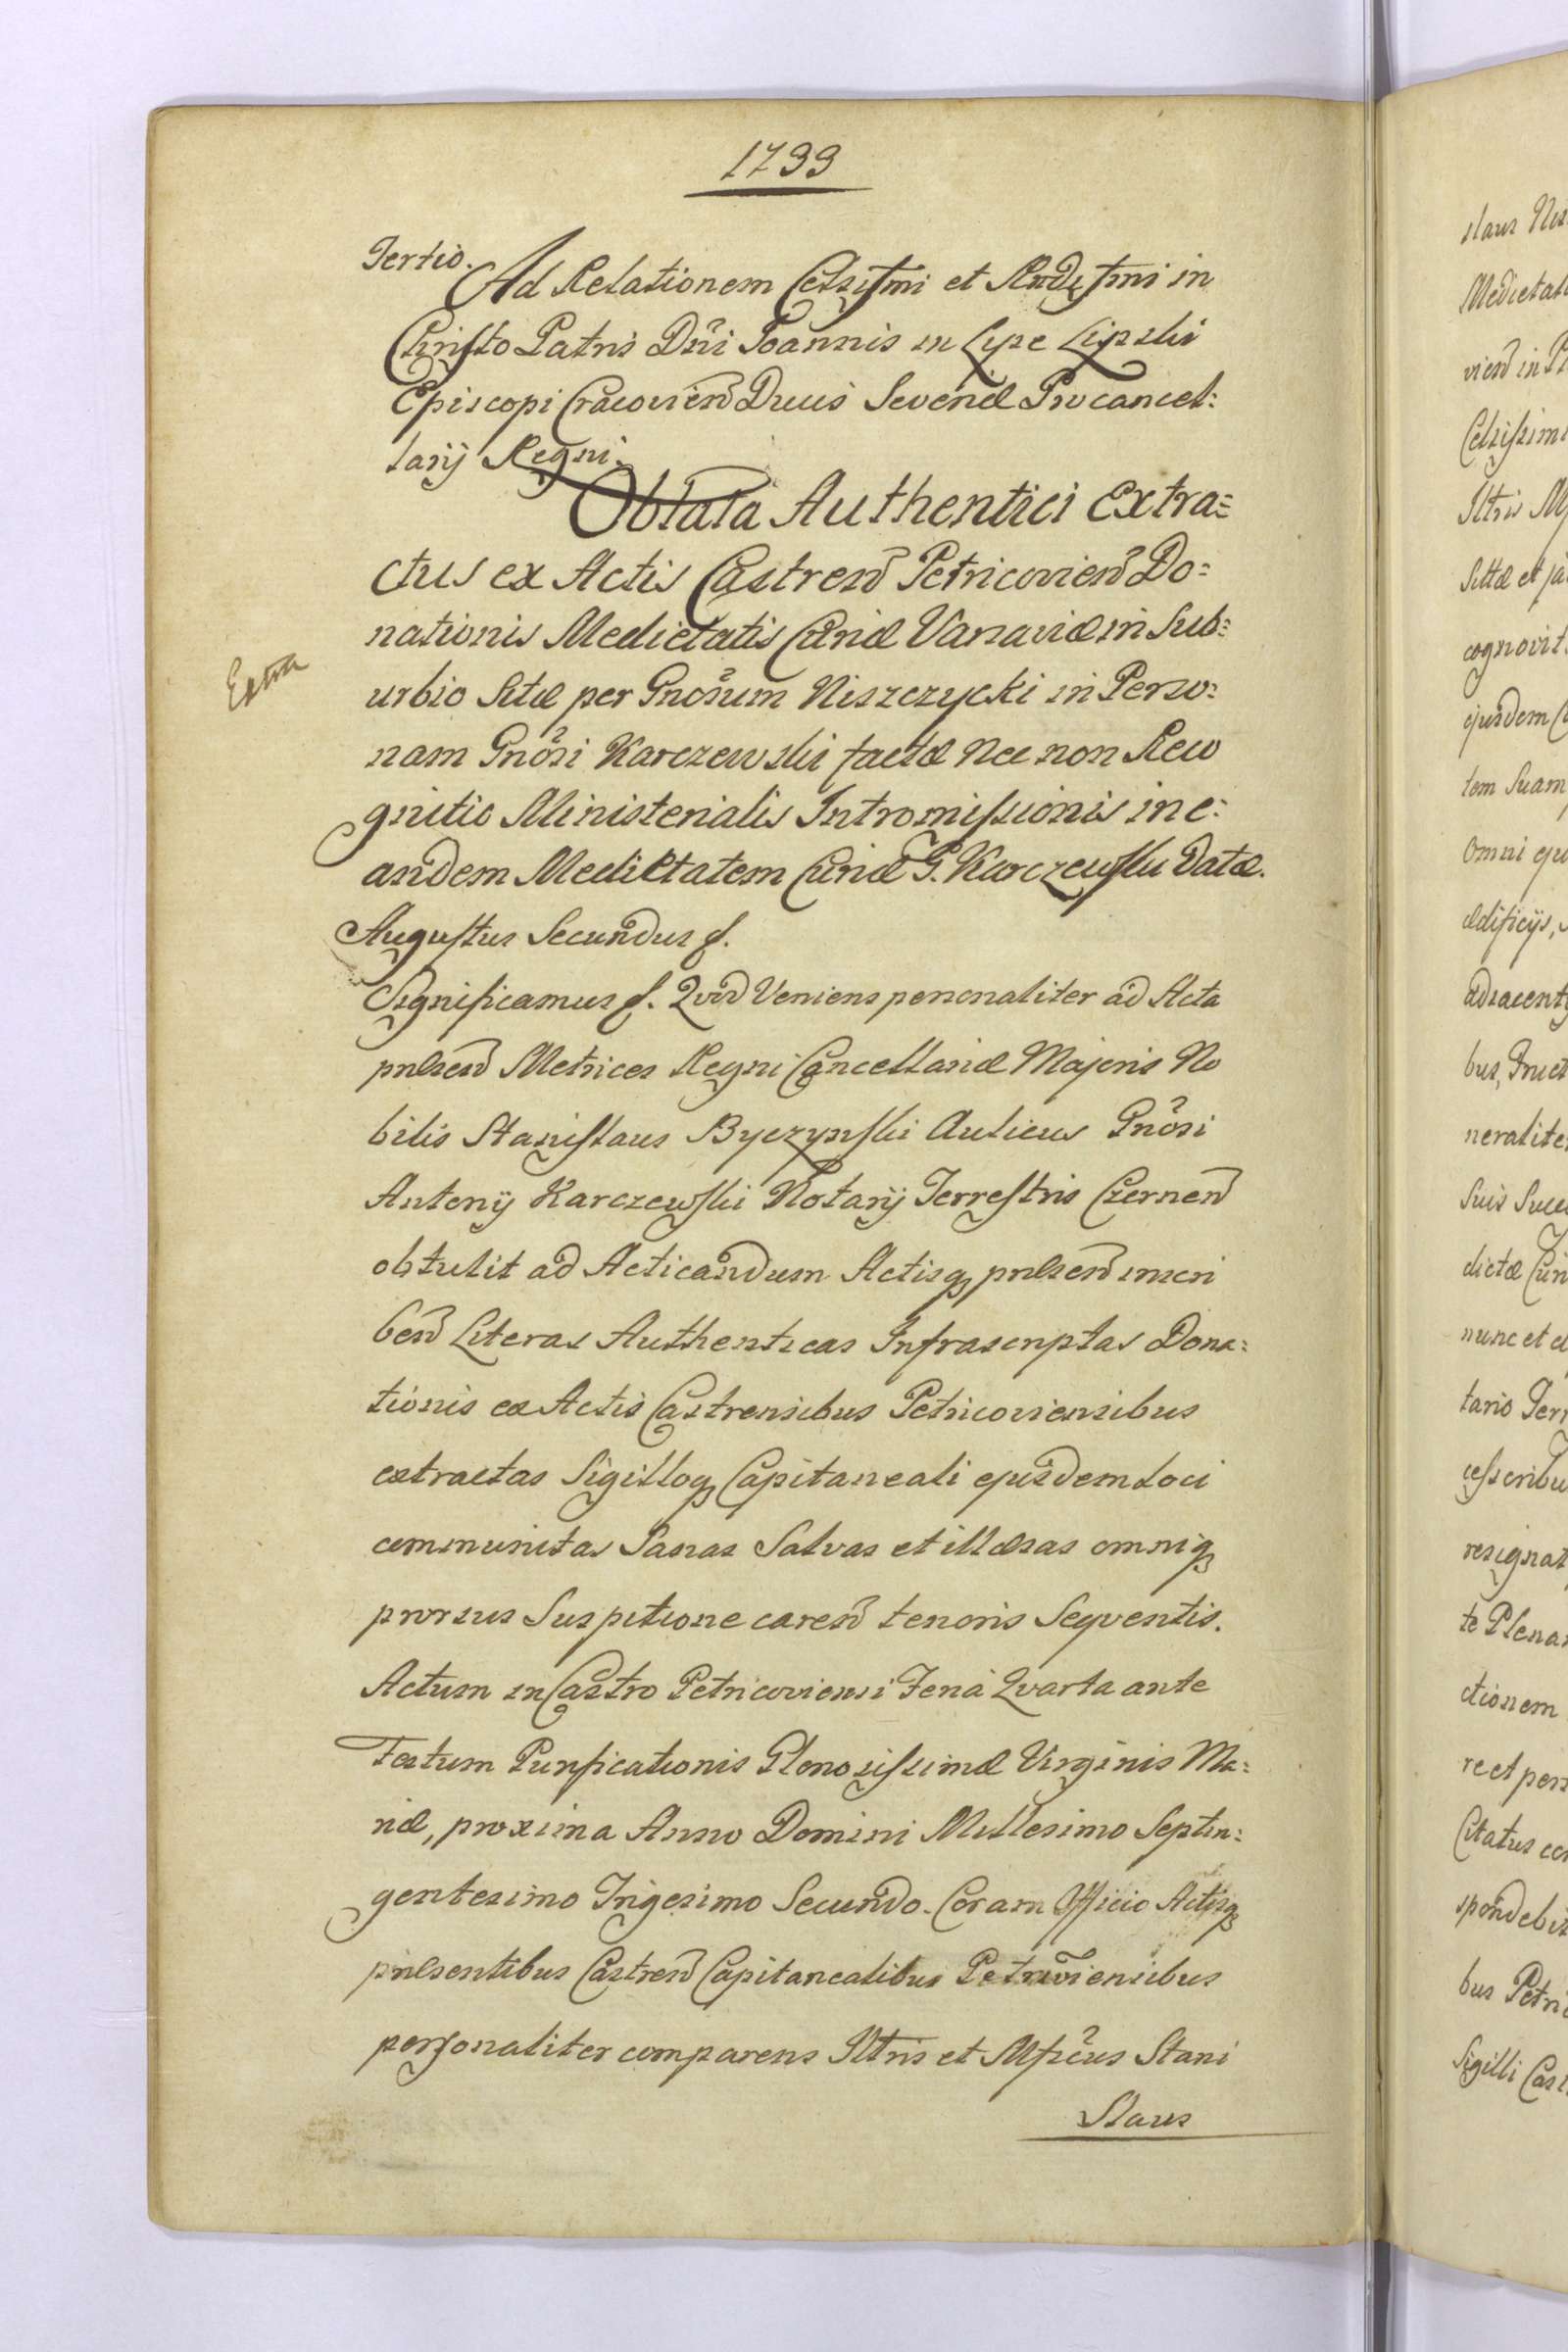 1733
Tertio.
Ad Relationem Celsissmi et Rndissmi in
Christo Patris Dni Joannis in Lipe Lipski
Episcopi Cracovien Ducis Severiæ Procancel:
larij Regni.
Oblata Authentici Extra=
ctus ex Actis Castren Petricovien Do:
nationis Medietatis Curiæ Varsaviæ in Sub:
Extra
urbio Sitæ per Gnosum Niszczycki in Perso:
nam Gnosi Karczewski factæ Nec non Reco
gnitio Ministerialis Intromissionis in e:
andem Medietatem Curiæ G. Karczewski Datæ.
Augustus Secundus &.
Significamus &. Qvod Veniens personaliter ad Acta
pnlsen Metrices Regni Cancellariæ Majoris No
bilis Stanislaus Byczynski Aulicus Gnosi
Antonij Karczewski Notarij Terrestris Czernen
obtulit ad Acticandum Actisq pnlsen inscri
ben Literas Authenticas Infrascriptas Dona:
tionis ex Actis Castrensibus Petricoviensibus
extractas Sigilloq Capitaneali ejusdem loci
communitas Sanas Salvas et illæsas omniq
prorsus Suspitione caren tenoris Seqventis.
Actum in Castro Petricoviensi Feria Qvarta ante
Festum Purificationis Gloriosissimæ Virginis Ma:
riæ, proxima Anno Domini Millesimo Septin:
gentesimo Trigesimo Secundo. Coram Officio Actisq
pnlsentibus Castren Capitanealibus Petricoviensibus
personaliter comparens Illtris et Mficus Stani
slaus
slaus Nis
Medietat
vien in P
Celsissim
Illtris M
Sittæ et ja
cognovit
ejusdem C
tem Suam
Omni qu
ædificijs,
adjacent
bus, Fruct
neralite
Suis Succ
dictæ Curi
nunc et
tario Terr
cessoribu
resignat
te Plenar
ctionem
re et pers
Citatus co
spondebit
bus Petri
Sigilli Cast